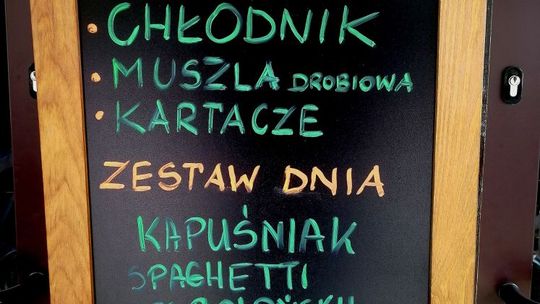 • CHŁODNIK
• MUSZLA DROBIOWA
• KARTACZE
ZESTAW DNIA
KAPUŚNIAK
SPAGHETTI